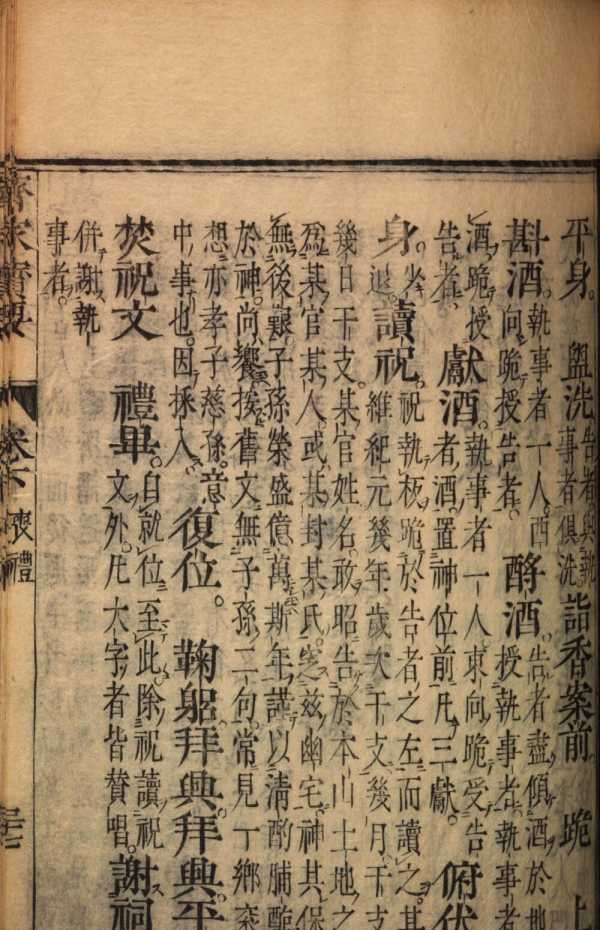 平身。盥洗告者與執事者俱洗詣香案前 跪 上
斟酒。執事者一人西向跪授告者。酹酒。告者盡傾酒於地
酒跪授告者。獻酒。執事者一人東向跪受告
授執事者執事者
者酒置神位前凡三獻。俯伏
身。少退。讀祝。祝執板跪於告者之左而讀之其
維紀元幾年歲次干支幾月干支
幾日干支。某官姓名。敢昭告於本山土地之
爲某官某人。或某封某氏。窆兹幽宅神其保
無後艱。子孫榮盛億萬斯年。謹以清酌脯醢
於神。尚饗按舊文無子孫二句。常見丁鄉
想亦孝子慈孫。意
中事也。因採入。復位。 鞠躬。拜興拜興平
焚祝文 禮畢。自就位至此。除祝讀祝文外。凡大字者皆贊唱。謝祠
併謝執
事者。
卷下 喪禮